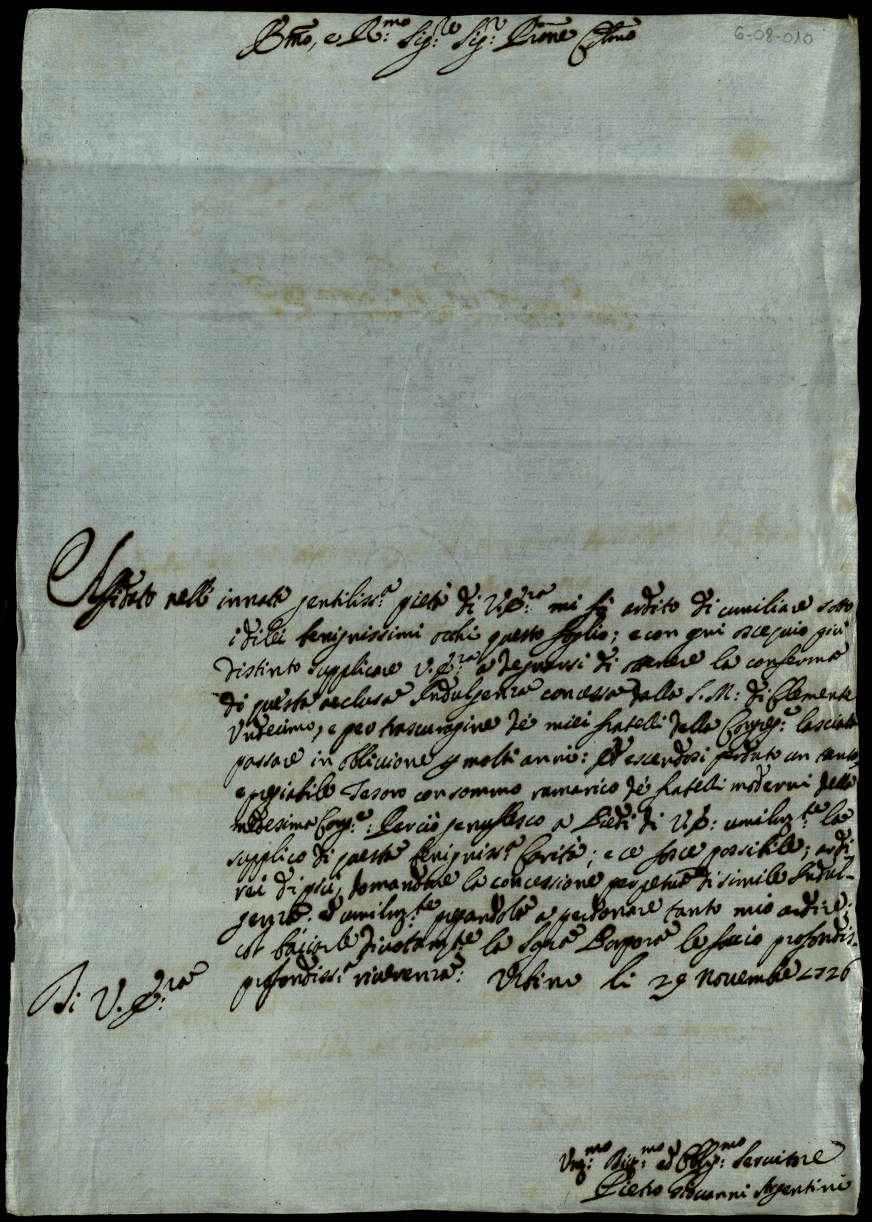 6-08-010
Emo, e Rmo Sig.re Sig.r Prone Colmo
Affidato nell' innata gentiliss.a pietà di V. E.za mi fò ardito di umiliare sotto
i di lei benignissimi occhi questo foglio; e con ogni ossequio più
distinto supplicare V. E.za a degnarsi di ottenere la conferma
di questa acclusa Indulgenza concessa dalla S. M: di Clemente
Undecimo, e per trascuragine de miei fratelli della Congreg.e lasciata
passare in oblivione p molti anni: Et essendosi perduto un tanto
e pregiabile Tesoro con sommo ramarico de' fratelli moderni della
medesima Cong.e: Perciò genuflesco a Piedi di V. E: umilm.te la
supplico di questa benigniss.a Carità; e ce fosce possibile; ardi
rei di più, domandare la concessione perpetua di simile Indul-
genza. ed umilm.te pregandola a perdonare tanto mio ardire;
col baciarle divotam.te la Sagra Porpora le faccio profondis-
profondiss.a riverenza: Urbino li 29 Novembre 1726
Di V. E.za
Um.mo Div.mo ed Obblig.mo Servitore
Pietro Giovanni Argentini